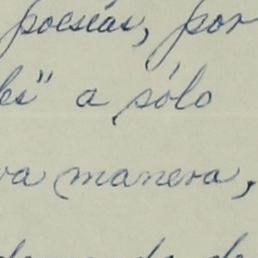 poesías, por
les" a sólo
va manera,